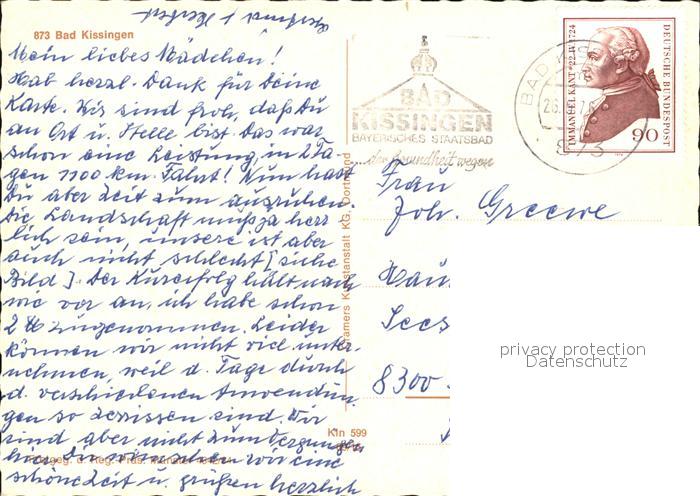 873 Bad Kissingen
Mein liebes Mädchen!
Hab herzl. Dank für Deine
Karte. Wir sind froh, daß Du
an Ort u. Stelle bist. Das war
schon eine Leistung, in 2 Ta-
gen 1100 km. Fahrt! Nun hast
Du aber Zeit zum ausruhen.
Die Landschaft muß ja herr
lich sein, unsere ist aber
auch nicht schlecht [siehe
Bild]. Der Kurerfolg hält nach
wie vor an, ich habe schon
2 ℔ zugenommen. Leider
können wir nicht viel unter-
nehmen, weil d. Tage durch
d. verschiedenen Anwendun
gen so zerrissen sind. Wir
sind aber nicht zum Vergnügen
hier. Dir wünschen wir eine
schöne Zeit u. grüßen herzlich
BAD
KISSINGEN
BAYERISCHES STAATSBAD
...der Gesundheit wegen
BAD KIS
26.
873
IMMANUEL KANT *22.IV.1724
DEUTSCHE BUNDESPOST
90
Cramers Kunstanstalt KG, Dortmund
Frau
Joh. Greewe
Sees
8300
Kin 599
privacy protection
Datenschutz